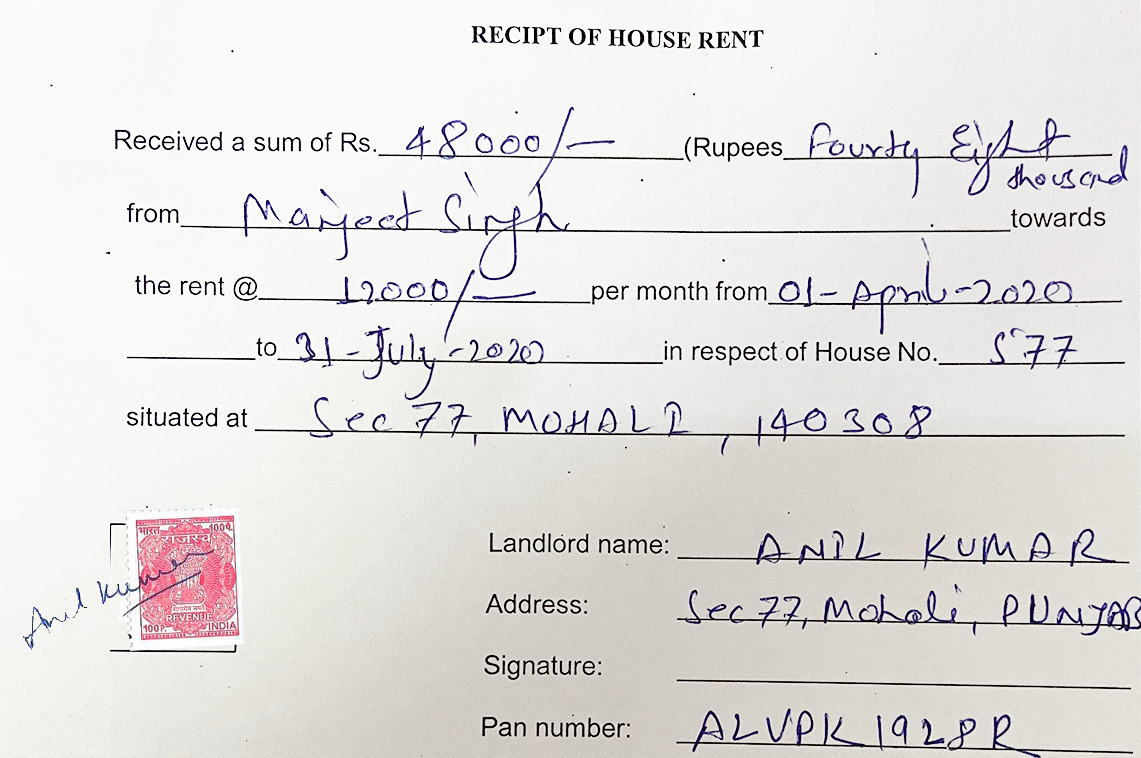 RECIPT OF HOUSE RENT
Received a sum of Rs. 48000/- (Rupees Fourty Eight
thousand
from Manjeet Singh towards
the rent @ 12000/- per month from 01-April-2020
to 31-July-2020 in respect of House No. S77
situated at Sec 77, MOHALI, 140308
भारत 100 पै.
राजस्व
सत्यमेव जयते
REVENUE
100P. INDIA
Anil Kumar
Landlord name: ANIL KUMAR
Address: Sec 77, Mohali, PUNJAB
Signature:
Pan number: ALVPK1928R